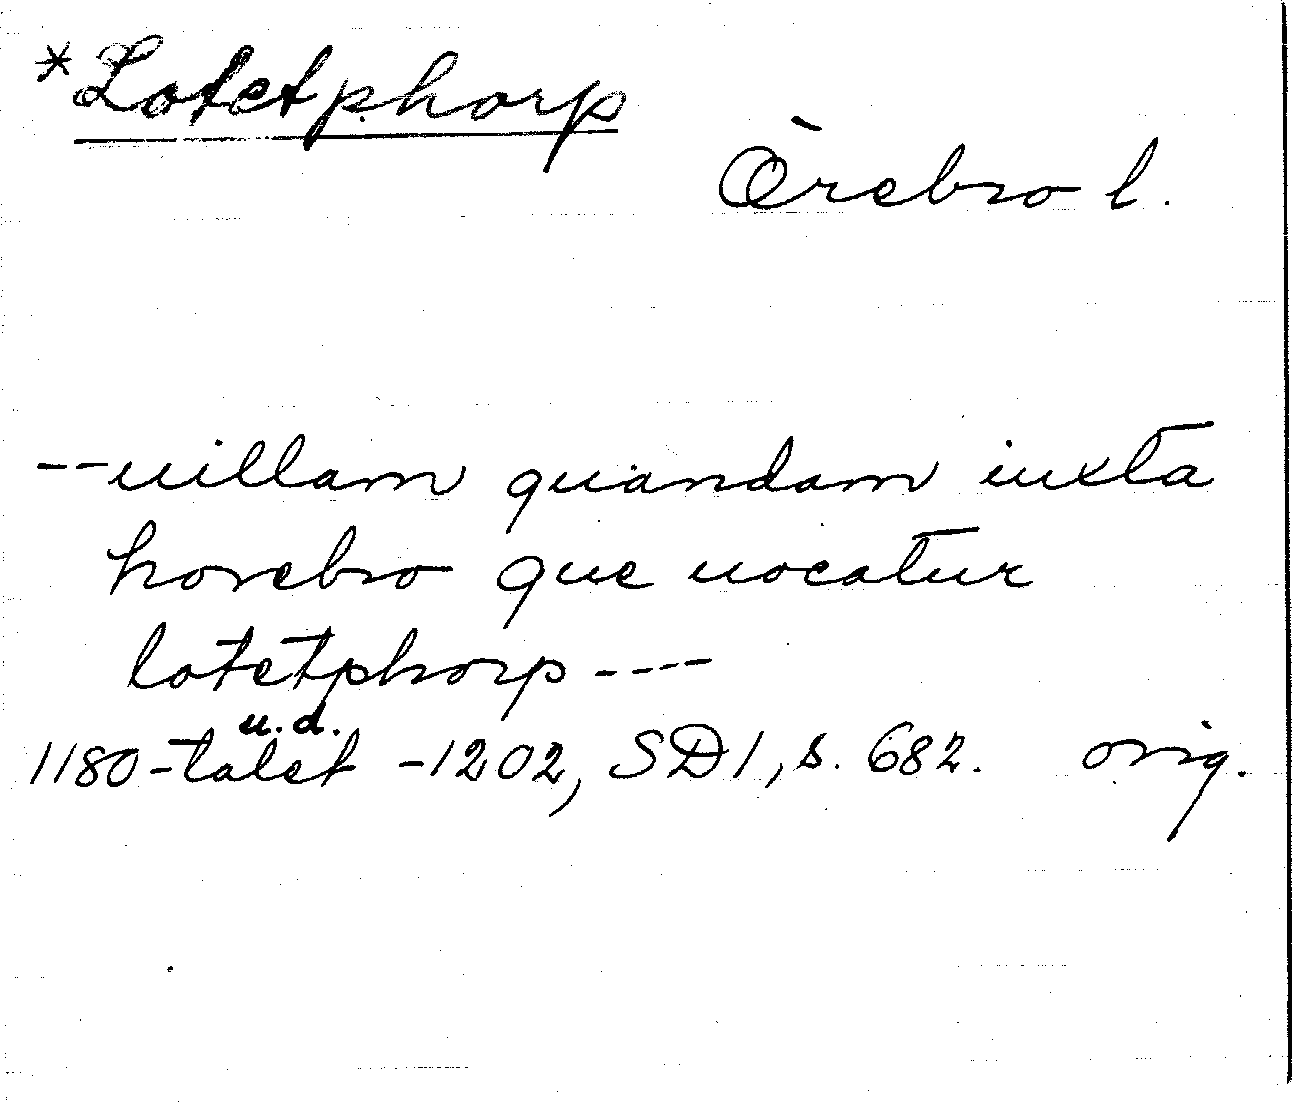 *Lotetphorp
Örebro l.
--uillam quandam iuxta
horebro que uocatur
lotetphorp ----
u.d.
1180-talet -1202, SD1, s. 682. orig.